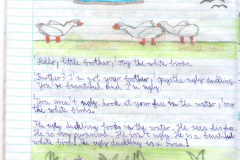 Hello, little brother, say the white birds.
Brother? I'm not your brother, says the ugly duckling.
You're beautiful and I'm ugly.
You aren't ugly. Look at you in the water, say
the white birds.
The ugly duckling looks in the water. He sees his
He is very surprised. He isn't ugly. He is a beautiful
white bird. The ugly duckling is a swan!